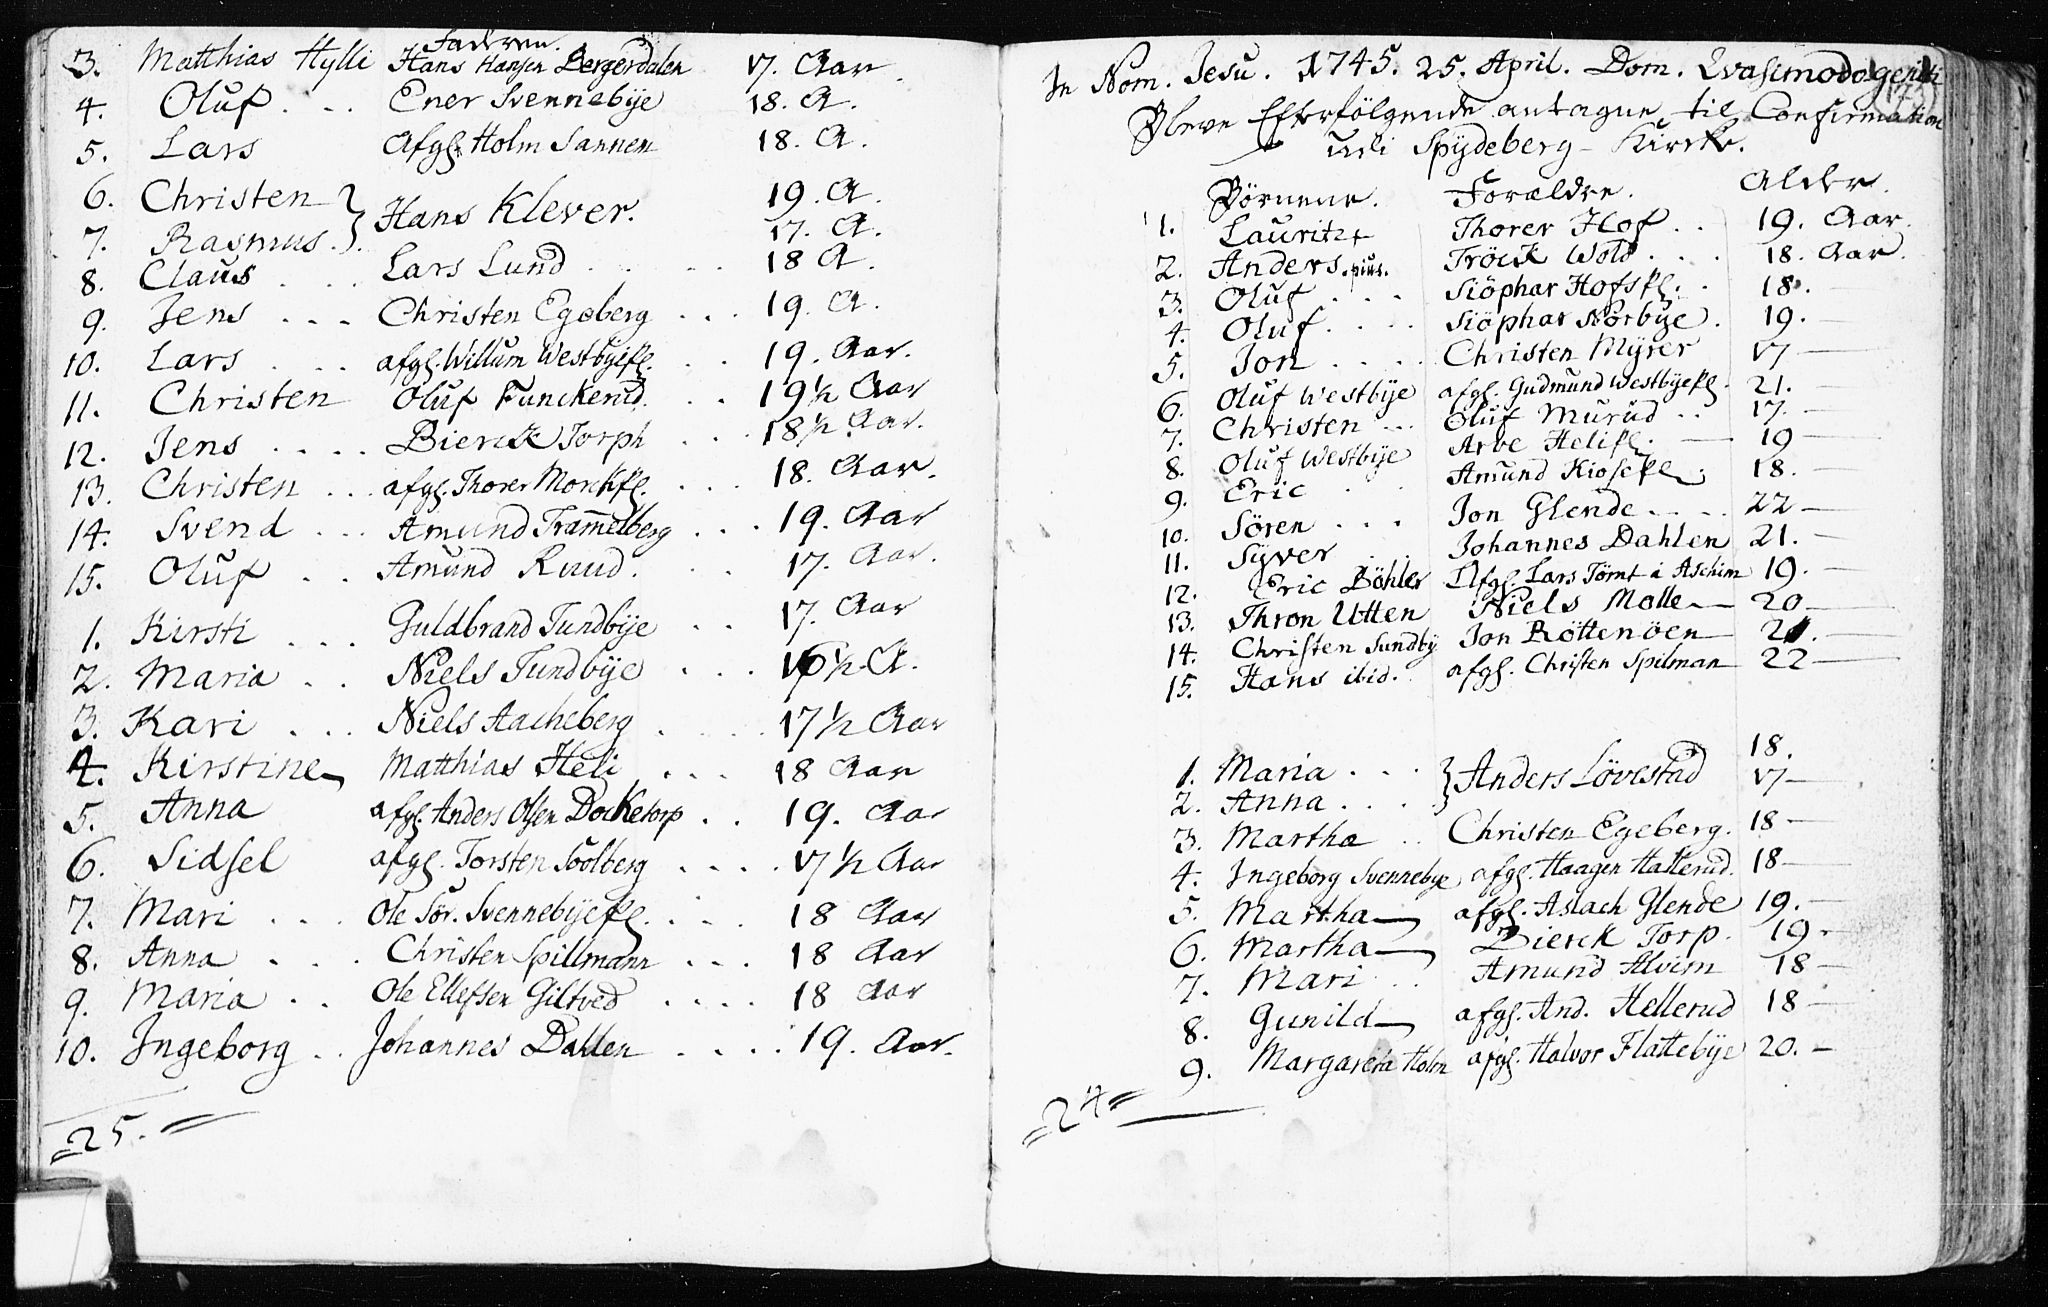 Faderen.
3. Matthias Hylli Hans Hansen Bergerdalen 17. Aar.
4. Oluf . . . Ener Svennebÿe 18. A.
5. Lars Afgl. Holm Sannem 18. A.
6. Christen } Hans Klever. 19. A.
7. Rasmus. } 17. A.
8. Claus . . . Lars Lund . . . . 18 A.
9. Jens . . . Christen Egeberg . . . 19. A.
10. Lars . . . afgl. Willum Westbÿepl. . . 19. Aar.
11. Christen Oluf Funckerud. . . 19 1/2 Aar
12. Jens . . . . Bierck Torph . . . 18 1/2 Aar.
13. Christen . . . afgl. Thorer Monckpl. . . . 18. Aar.
14. Svend . . . Amund Tram̄elberg . . . 19. Aar
15. Oluf . . Amund Ruud. . . . 17. Aar.
1. Kirsti . . . Guldbrand Tundbÿe . . 17. Aar
2. Maria . . Niels Tundbÿe . . . 16 1/2 A.
3. Kari . . . Niels Aacheberg . . . . 17 1/2 Aar
4. Kirstine Matthias Heli . . . 18 Aar
5. Anna afgl. Anders Olsen Docketorp . . 19. Aar
6. Sidsel afgl. Torsten Soolberg . . . . 17 1/2 Aar
7. Mari . . . Ole Sör. Svennebÿepl. . . . 18 Aar
8. Anna . . . Christen Spillmann . . . 18 Aar
9. Maria . . Ole Ellefsen Giltved . . . . 18 Aar
10. Ingeborg . . Johannes Dahlen . . . . 19. Aar.
= 25. =
In Nom. Jesu. 1745. 25. April. Dom. Qvasimodogeniti
Bleve Efterfölgende antagne til Confirmation
udi Spÿdeberg-Kirke.
Börnene. Forældre. Alder.
1. Lauritz Thorer Hof . . 19. Aar.
2. Anders. Tröck Wold . . . 18. Aar.
3. Oluf . . . Siöphar Hofspl. . 18. —
4. Oluf. . . . Siöphar Norbÿe. 19. —
5. Jon . . . . Christen Mÿrer 17 —
6. Oluf Westbÿe afgl. Gudmund Westbÿepl. 21. —
7. Christen . . . Oluf Murud . . 17. —
8. Oluf Westbÿe Arve Helipl. — 19 —
9. Eric . . Amund Kiosepl. 18. —
10. Sören . . . Jon Glende . . . . 22 —
11. Sÿver . . Johannes Dahlen 21. —
12. Eric Böhler Afgl. Lars Tömt i Aschim 19. —
13. Thron Utten Niels Molle — 20 —
14. Christen Sundbÿ Jon Rötenöen 21. —
15. Hans ibid. afgl. Christen Spilman 22 —
1. Maria . . . } Anders Lövestad 18.
2. Anna . . . } 17 —
3. Martha . . Christen Egeberg. 18 —
4. Ingeborg Svennebye afgl. Haagen Hallerud. 18 —
5. Martha afgl. Aslach Glende 19. —
6. Martha Bierck Torp. 19. —
7. Mari . . Amund Alvim 18 —
8. Gunild afgl. And. Hellerud 18 —
9. Margareta Holm afgl. Halvor Flattebÿe 20. —
= 24 =